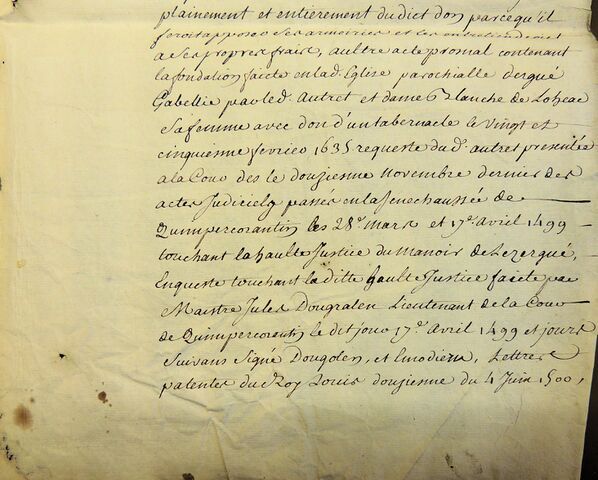 plainement et entierement du dict don parcequ'il
feroit apposer ses armoiries et les entretiendroit
a ses propres frais, aultre acte prosnal contenant
la fondation faicte en lad. Eglise parochialle dergué
Gabellic par led. Autret et dame Blanche de Loheac
sa femme avec don d'un tabernacle le vingt et
cinquienne febvrier 1635 requeste du d. autret presentée
a la Cour des le douzienne novembre dernier des
actes Judiciels passés en la senechaussée de
Quimpercorantin les 28e. Mars et 17e. avril 1499
touchant la haulte Justice du Manoir de Lezergué,
Enqueste touchant la ditte haulte Justice faicte par
Maistre Jules Dougralen Lieutenant de la Cour
de Quimpercorantin le dit jour 17e. Avril 1499 et jours
suivans Signé Dougolen, et Emodiern, Lettres
patentes du Roy Louis douzienne du 4 Juin 1500,